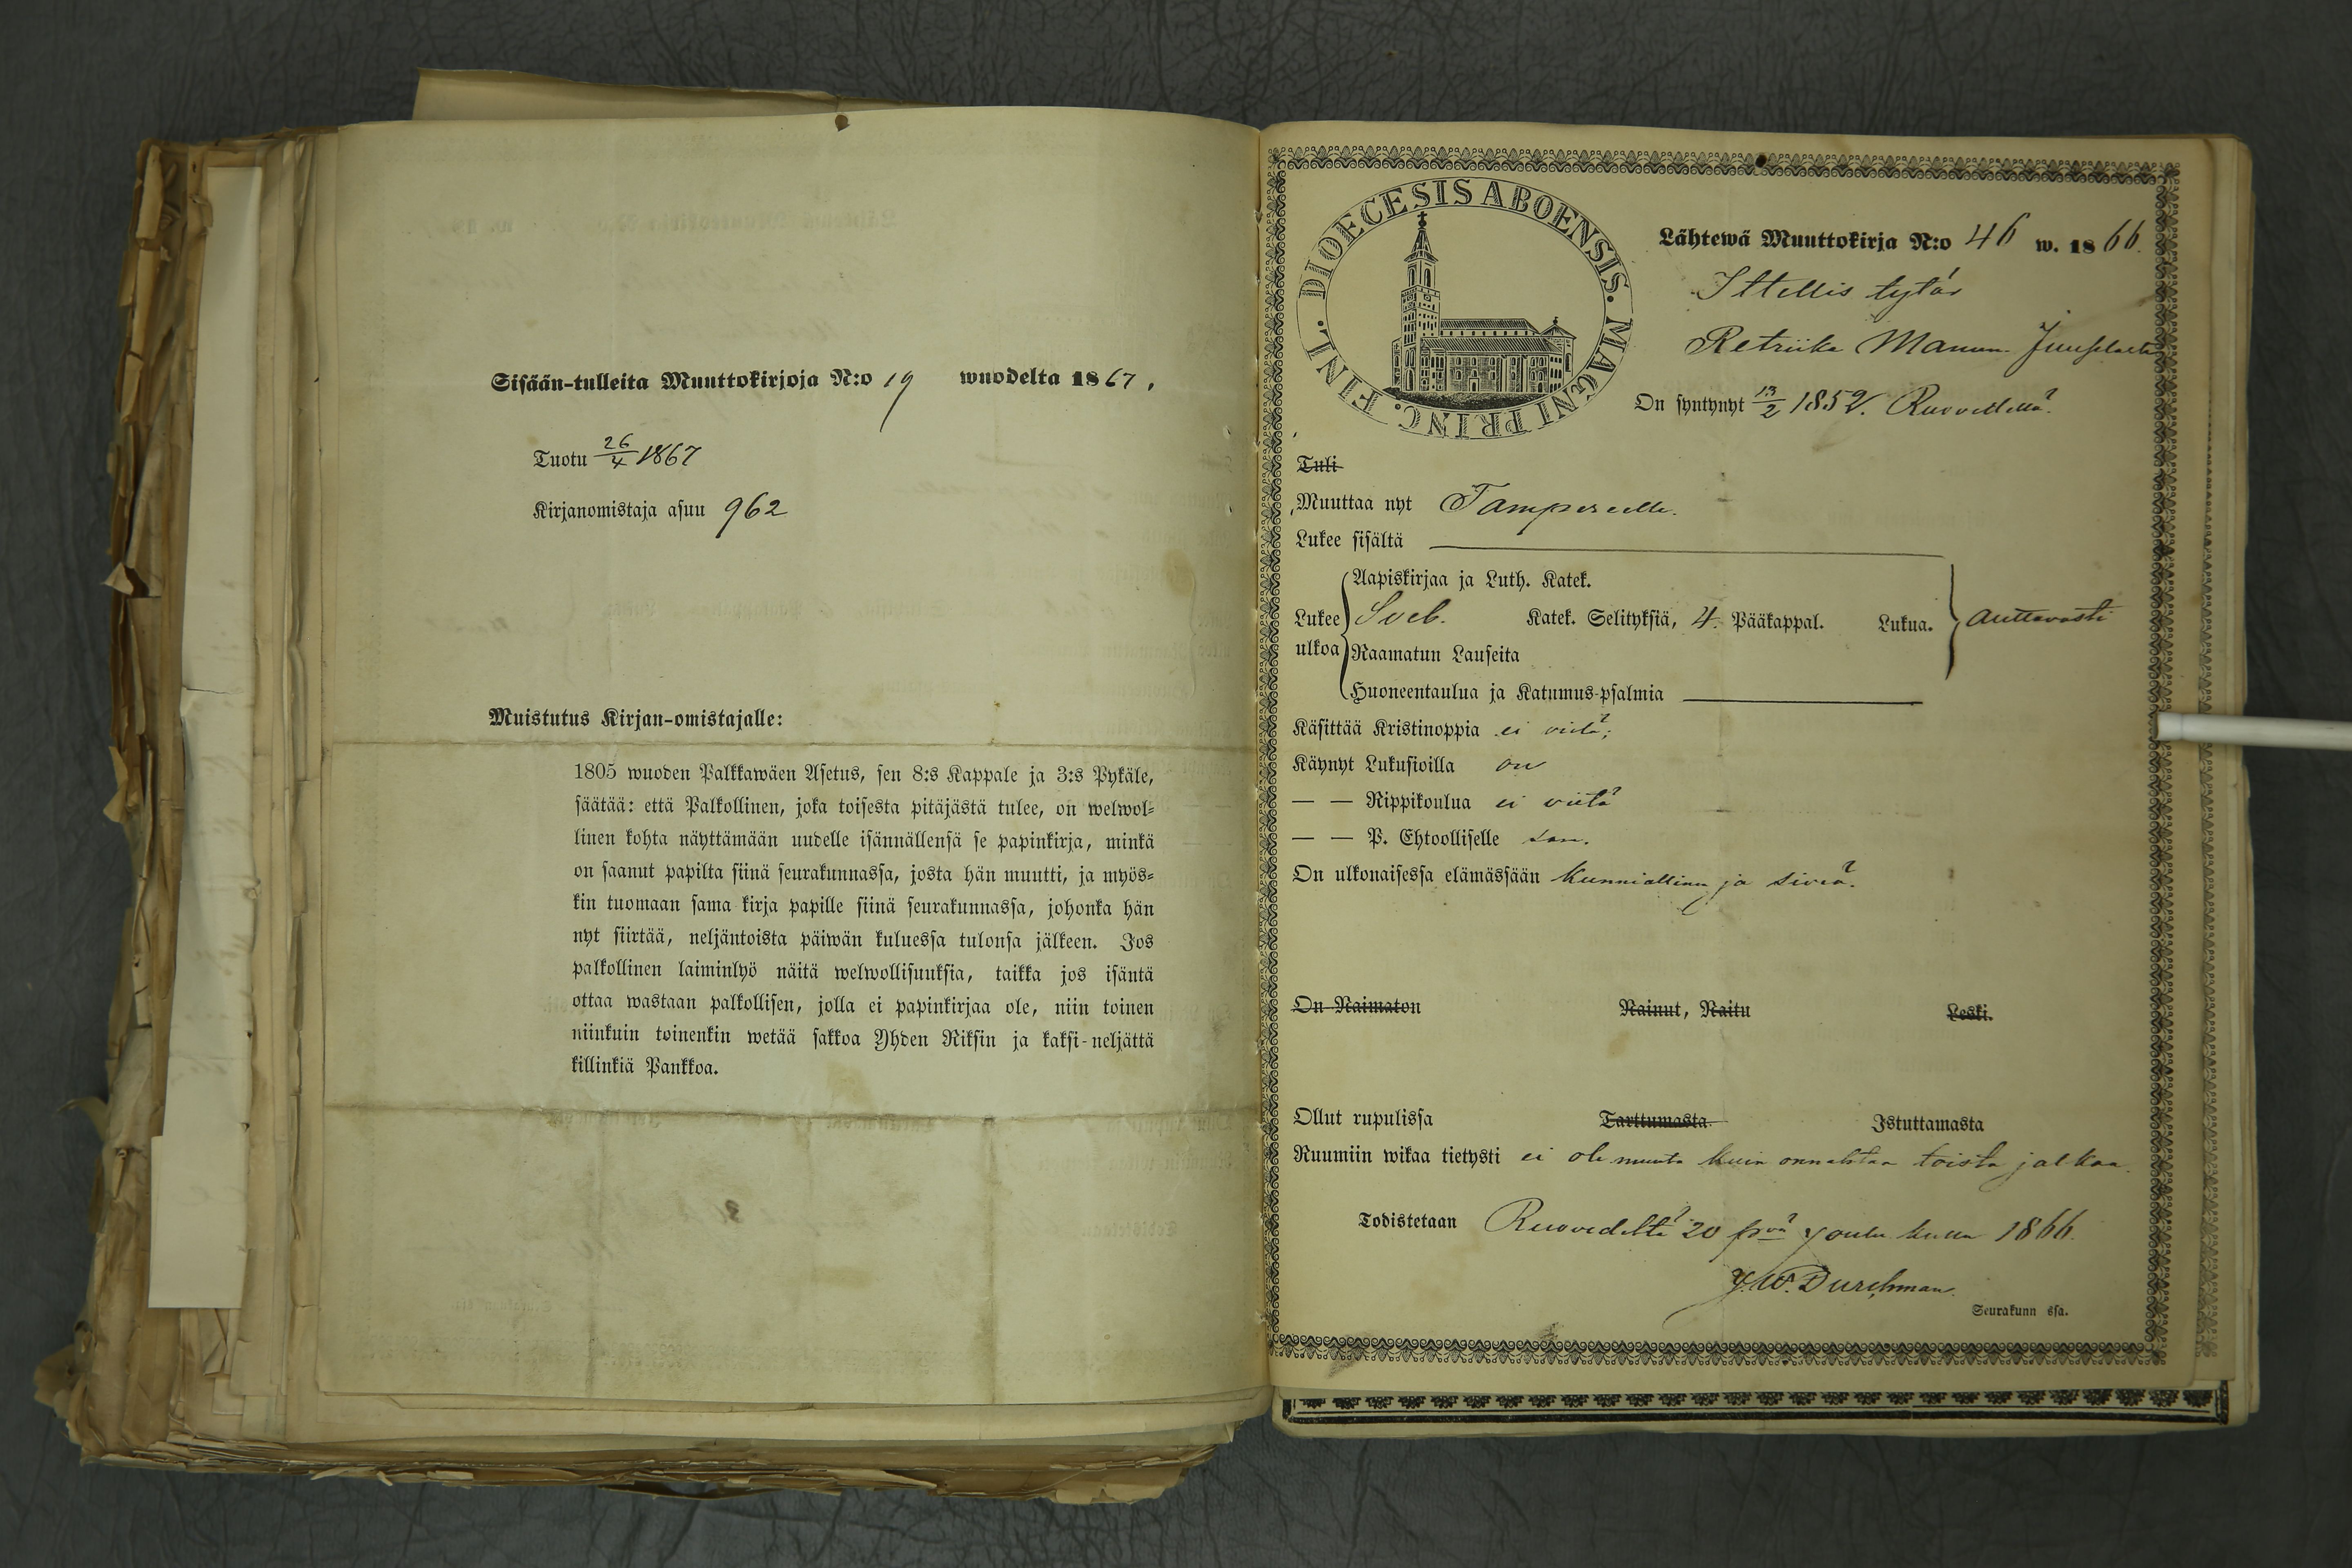 Sisään-tulleita Muuttokirjoja N:o 19 wuodelta 1867.
Tuotu 26/4 1867
Kirjanomistaja asuu 962
Muistutus Kirjan-omistajalle:
1805 wuoden Palkkawäen Asetus, sen 8:s Kappale ja 3:s Pykäle,
säätää: että Palkollinen, joka toisesta pitäjästä tulee, on welwol-
linen kohta näyttämään uudelle isännällensä se papinkirja, minkä
on saanut papilta siinä seurakunnassa, josta hän muutti, ja myös-
kin tuomaan sama kirja papille siinä seurakunnassa, johonka hän
nyt siirtää, neljäntoista päiwän kuluessa tulonsa jälkeen. Jos
palkollinen laiminlyö näitä welwollisuuksia, taikka jos isäntä
ottaa wastaan palkollisen, jolla ei papinkirjaa ole, niin toinen
niinkuin toinenkin wetää sakkoa Yhden Riksin ja kaksi-neljättä
killinkiä Pankkoa.
DIOECESIS ABOENSIS. MAGNI PRINC. FINL.
Lähtewä Muuttokirja N:o 46 w. 1866.
Ittellis tytär
Retriika Manun
On syntynyt 13/2 1852. Ruovedellä.
Tuli
Muuttaa nyt Tampereelle.
Lukee sisältä
Aapiskirjaa ja Luth. Katek.
Lukee ulkoa Sveb. Katek. Selityksiä, 4. Pääkappal. Lukua. auttavasti
Raamatun Lauseita
Huoneentaulua ja Katumus-psalmia
Käsittää Kristinoppia ei vielä;
Käynyt Lukusioilla on
— — Rippikoulua ei vielä
— — P. Ehtoolliselle sam.
On ulkonaisessa elämässään kunniallinen ja siviä.
On Naimaton Nainut, Naitu Leski.
Ollut rupulissa Tarttumasta Istuttamasta
Ruumiin wikaa tietysti ei ole muuta kuin onnahtaa toista jalkaa.
Todistetaan Ruovedeltä 20 pvä joulu kuun 1866.
J. W. Durchman.
Seurakunn ssa.